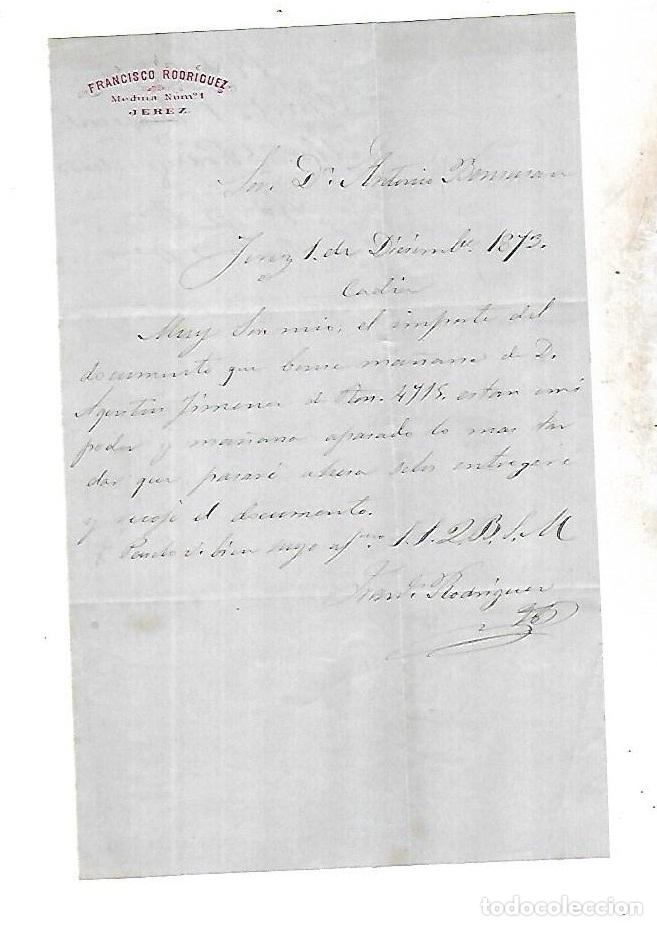 FRANCISCO RODRIGUEZ
Medina Num.º 1
JEREZ
Sr. Dn. Antonio Bensusan
Jerez 1. de Diciembe. 1873.
Cadiz
Muy Sor. mio, el importe del
documento que bense mañana de D.
Agustin Jimenez de Rvn. 4715. estan emi
poder y mañana apasado lo mas tar
dar que pasaré a selos entregaré
y recojé el documento.
bien suyo afmo. S. S. Q. B. S. M
Franco. Rodriguez
todocoleccion
todocoleccion.net